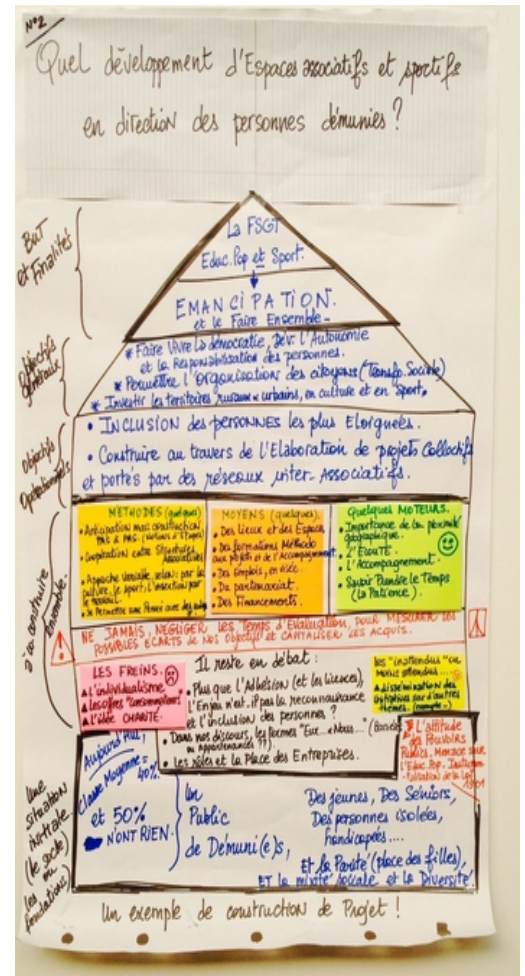 N°2
Quel développement d'Espaces associatifs et sportifs
en direction des personnes démunies ?
BUT
et Finalités
La FSGT
Educ. Pop et Sport.
EMANCIPATION.
et le Faire Ensemble -
Objectifs
généraux
* Faire Vivre la démocratie, Dév. l'Autonomie
et la Responsabilisation des personnes.
* Permettre l'Organisation des citoyens (Transfo. Sociale)
* Investir les territoires ruraux & urbains, en culture et en Sport.
Objectifs
Opérationnels
• INCLUSION des personnes les plus Eloignées.
• Construire au travers de l'Elaboration de projets Collectifs
et portés par des réseaux inter-Associatifs.
à co-construire
ensemble.
METHODES (quelques)
• Anticipation mais construction
PAS à PAS. (notions d'Etapes)
• Coopération entre Structures
Associatives
• Approche selon : par la
culture, le sport, l'insertion par
le
• Se Permettre une Pensée avec des
MOYENS (quelques).
• Des Lieux et des Espaces
• Des formations Méthodo
aux projets et de l'Accompagnement.
• Des Emplois,
• Du partenariat.
• Des Financements.
Quelques MOTEURS.
• Importance de la proximité
géographique.
• L'ECOUTE.
• L'Accompagnement.
• Savoir Prendre le Temps
(la Patience).
NE JAMAIS, NEGLIGER les Temps d'Evaluation, POUR MESURER LES
POSSIBLES ECARTS de Nos Objectifs et CAPITALISER LES ACQUIS.
LES FREINS.
L'individualisme
Les offres "consommations"
L'idée CHARITÉ.
Il reste en débat :
• Plus que l'Adhésion (et les licences),
L'Enjeu n'est-il pas la reconnaissance
et l'inclusion des personnes ?
• Dans nos discours, les formes "Eux et Nous..."
ou appartenances ??).
• Les rôles et la Place des Entreprises.
les "inattendus" ou
moins attendus...
dissémination des
initiatives sur d'autres
thèmes.
* L'attitude
des Pouvoirs
Publics, Menace sur
l'Educ. Pop.
de la Loi
1901
Une
situation
initiale
(le socle
ou
les
fondations)
Aujourd'hui,
Classe Moyenne =
40%.
et 50%
N'ONT RIEN.
Un
Public
de Démuni(e)s,
Des jeunes, Des Séniors,
Des personnes isolées,
handicapées....
Et la Parité (place des filles),
ET la mixité sociale et la Diversité.
Un exemple de construction de Projet !